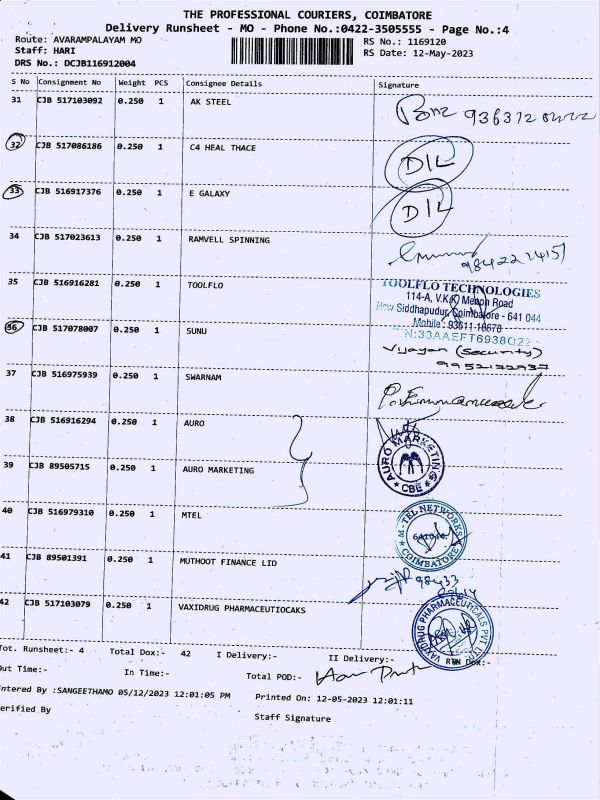 THE PROFESSIONAL COURIERS, COIMBATORE
Delivery Runsheet - MO - Phone No.:0422-3505555 - Page No.:4
Route: AVARAMPALAYAM MO
RS No.: 1169120
Staff: HARI
RS Date: 12-May-2023
DRS No.: DCJB116912004
S No Consignment No Weight PCS Consignee Details Signature
31 CJB 517103092 0.250 1 AK STEEL
32 CJB 517086186 0.250 1 C4 HEAL THACE D/L
33 CJB 516917376 0.250 1 E GALAXY D/L
34 CJB 517023613 0.250 1 RAMVELL SPINNING
35 CJB 516916281 0.250 1 TOOLFLO
TOOLFLO TECHNOLOGIES
114-A, V.K.K. Menon Road
New Siddhapudur, Coimbatore - 641 044
Mobile : 93611-16678
36 CJB 517078007 0.250 1 SUNU
Vijayan (Security)
37 CJB 516975939 0.250 1 SWARNAM
38 CJB 516916294 0.250 1 AURO
39 CJB 89505715 0.250 1 AURO MARKETING
AURO MARKETING
CBE
40 CJB 516979310 0.250 1 MTEL
M-TEL NETWORKS
COIMBATORE
41 CJB 89501391 0.250 1 MUTHOOT FINANCE LID
42 CJB 517103079 0.250 1 VAXIDRUG PHARMACEUTIOCAKS
VAXIDRUG PHARMACEUTICALS PVT LTD
Tot. Runsheet:- 4 Total Dox:- 42 I Delivery:- II Delivery:- RTN Dox:-
Out Time:- In Time:- Total POD:-
Entered By :SANGEETHAMO 05/12/2023 12:01:05 PM Printed On: 12-05-2023 12:01:11
Verified By Staff Signature